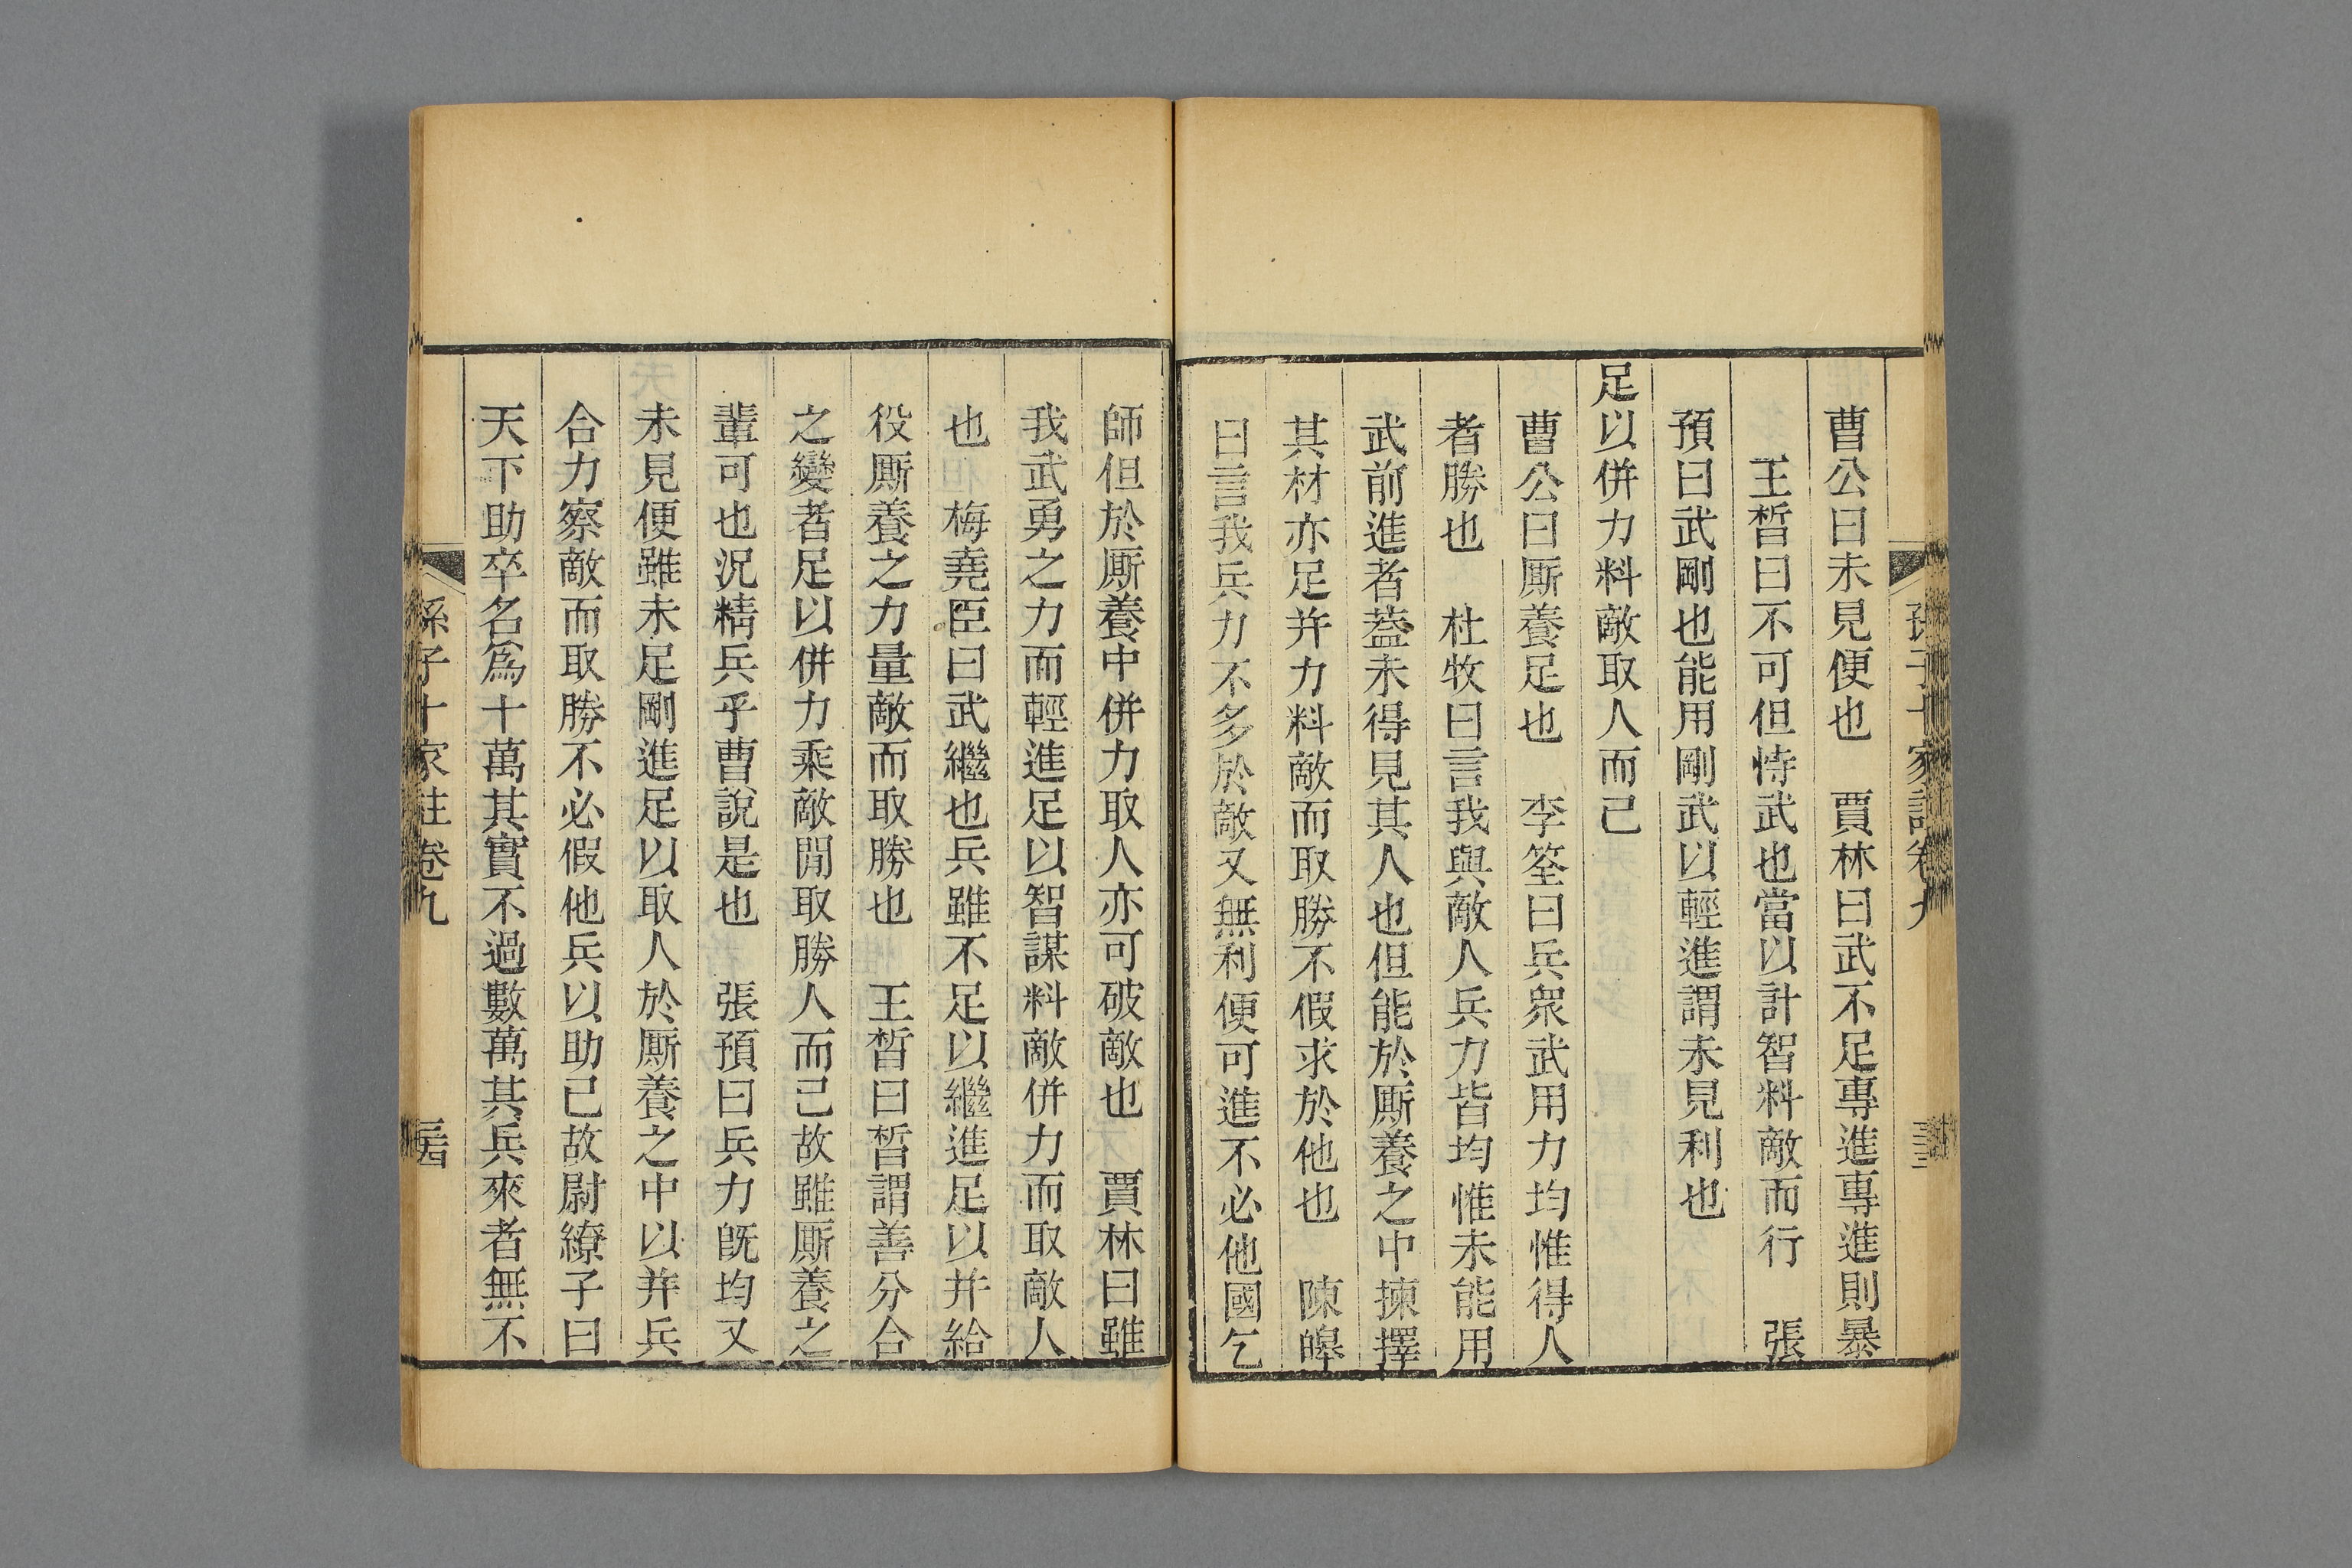 孫子十家註卷九
曹公曰未見便也　賈林曰武不足專進專進則暴
王晳曰不可但恃武也當以計智料敵而行　張
預曰武剛也能用剛武以輕進謂未見利也
足以併力料敵取人而已
曹公曰厮養足也　李筌曰兵衆武用力均惟得人
者勝也　杜牧曰言我與敵人兵力皆均惟未能用
武前進者葢未得見其人也但能於厮養之中揀擇
其材亦足并力料敵而取勝不假求於他也　陳皥
曰言我兵力不多於敵又無利便可進不必他國乞
師但於厮養中併力取人亦可破敵也　賈林曰雖
我武勇之力而輕進足以智謀料敵併力而取敵人
也　梅堯臣曰武繼也兵雖不足以繼進足以并給
役厮養之力量敵而取勝也　王晳曰晳謂善分合
之變者足以併力乘敵閒取勝人而已故雖厮養之
輩可也況精兵乎曹說是也　張預曰兵力旣均又
未見便雖未足剛進足以取人於厮養之中以并兵
合力察敵而取勝不必假他兵以助己故尉繚子曰
天下助卒名爲十萬其實不過數萬其兵來者無不
孫子十家註卷九